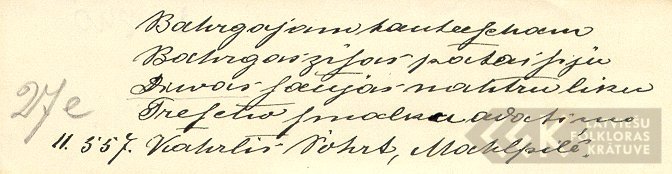 Bahrgajam tautescham
Bahrgas zisas pataisiju
Diwas saujas nahtru liku
Trescho smalku adatinu
27e
11.557. Kahrlis Sohrt, Mahlpilī.
LATVIEŠU
FOLKLORAS
KRĀTUVE